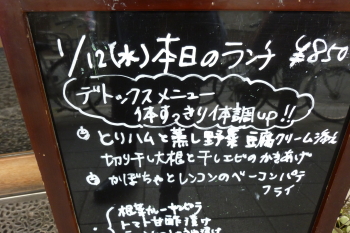 1/12(水)本日のランチ ¥850
デトックスメニュー
体すっきり体調up!!
とりハムと蒸し野菜 豆腐クリーム添え
切り干し大根と干しエビのかきあげ
かぼちゃとレンコンのベーコンパテ
フライ
トマト甘酢漬け